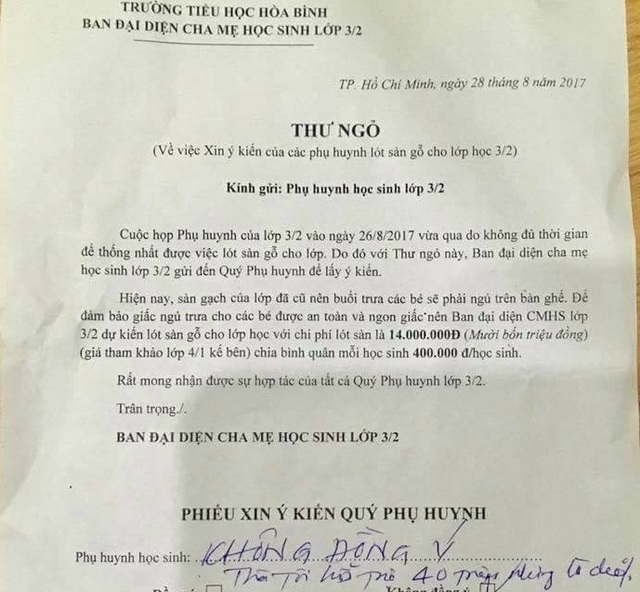 TRƯỜNG TIỂU HỌC HÒA BÌNH
BAN ĐẠI DIỆN CHA MẸ HỌC SINH LỚP 3/2
TP. Hồ Chí Minh, ngày 28 tháng 8 năm 2017
THƯ NGỎ
(Về việc Xin ý kiến của các phụ huynh lót sàn gỗ cho lớp học 3/2)
Kính gửi: Phụ huynh học sinh lớp 3/2
Cuộc họp Phụ huynh của lớp 3/2 vào ngày 26/8/2017 vừa qua do không đủ thời gian
để thống nhất được việc lót sàn gỗ cho lớp. Do đó với Thư ngỏ này, Ban đại diện cha mẹ
học sinh lớp 3/2 gửi đến Quý Phụ huynh để lấy ý kiến.
Hiện nay, sàn gạch của lớp đã cũ nên buổi trưa các bé sẽ phải ngủ trên bàn ghế. Để
đảm bảo giấc ngủ trưa cho các bé được an toàn và ngon giấc nên Ban đại diện CMHS lớp
3/2 dự kiến lót sàn gỗ cho lớp học với chi phí lót sàn là 14.000.000Đ (Mười bốn triệu đồng)
(giá tham khảo lớp 4/1 kế bên) chia bình quân mỗi học sinh 400.000 đ/học sinh.
Rất mong nhận được sự hợp tác của tất cả Quý Phụ huynh lớp 3/2.
Trân trọng./.
BAN ĐẠI DIỆN CHA MẸ HỌC SINH LỚP 3/2
PHIẾU XIN Ý KIẾN QUÝ PHỤ HUYNH
Phụ huynh học sinh: KHÔNG ĐỒNG Ý
tôi hỗ trợ 40